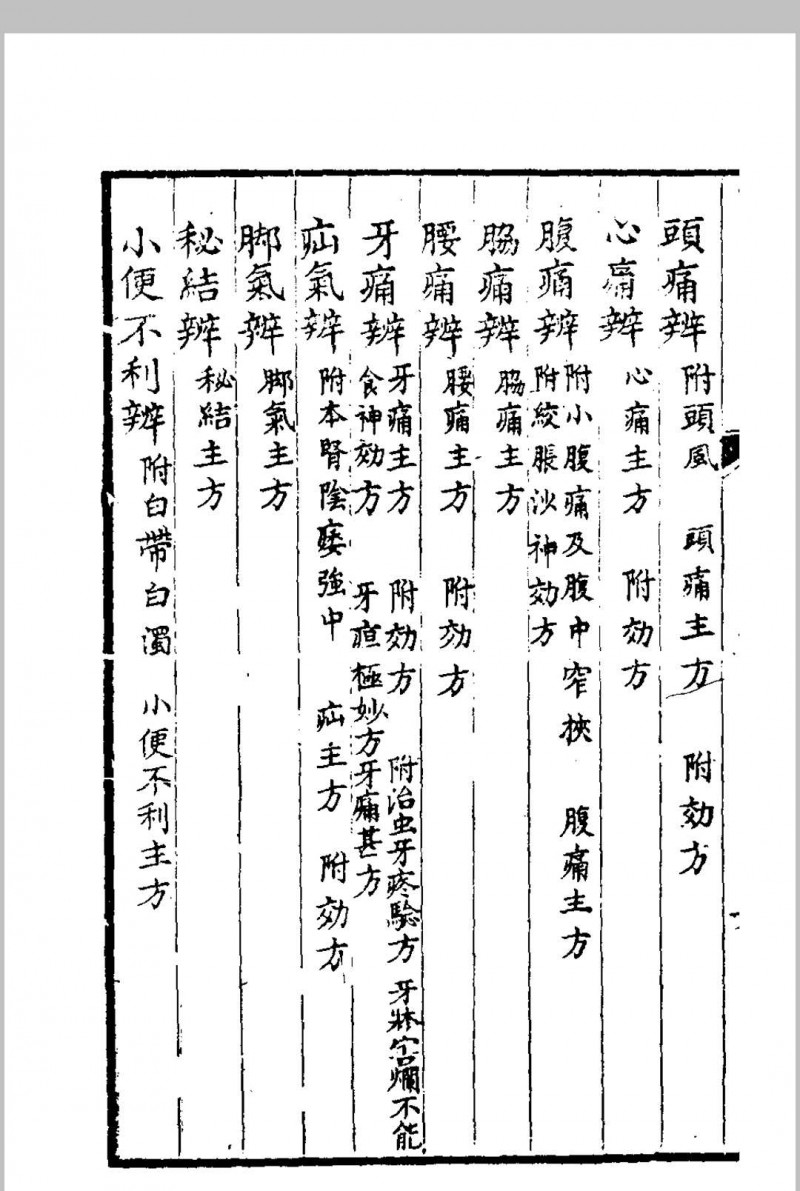 頭痛辨 附頭風 頭痛主方 附効方
心痛辨 心痛主方 附効方
腹痛辨 附小腹痛及腹中窄挾 腹痛主方
附絞腸沙神効方
脇痛辨 脇痛主方
腰痛辨 腰痛主方 附効方
牙痛辨 牙痛主方 附効方 附治虫牙疼驗方 牙牀宣爛不能
食神効方 牙疳極妙方 牙痛甚方
疝氣辨 附本腎陰痿強中 疝主方 附効方
脚氣辨 脚氣主方
秘結辨 秘結主方
小便不利辨 附白帶白濁 小便不利主方